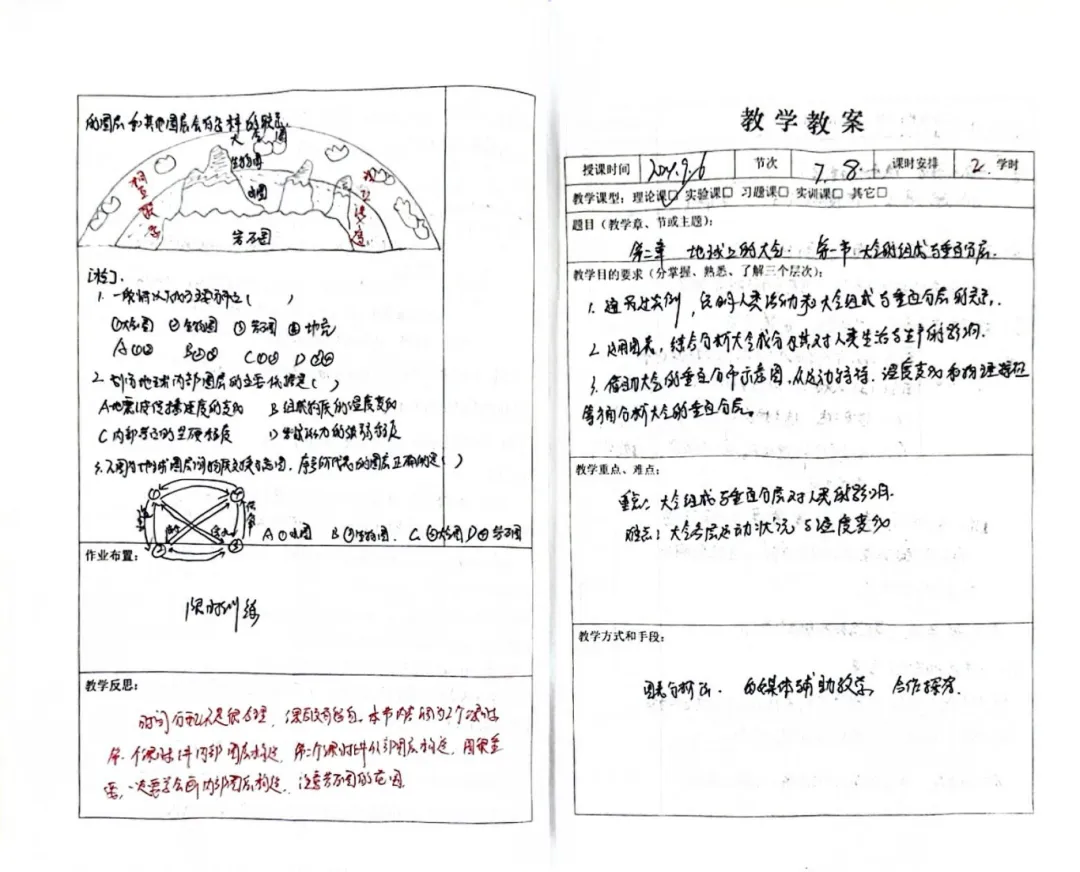 的圈层和其他圈层会有怎样的联系.
大气圈
生物圈
水圈
岩石圈
相互联系
相互渗透
1. 一般情况下
①大气圈 ②生物圈 ③岩石圈 ④地壳
A ①② B ②③ C ①③ D
2. 划分地球内部圈层的主要依据是（ ）
A 地震波传播速度的变化 B 组成物质的温度变化
C 内部岩石的坚硬程度 D
3. 下图为地球圈层间的物质交换示意图，序号所代表的圈层正确的是（ ）
① ④
② ③
A ①水圈 B ①生物圈. C ②大气圈 D ④岩石圈
作业布置：
课时训练
教学反思：
时间分配不是很合理，本节内容分为2个课时
第一个课时讲内部圈层构造，第二个课时讲外部圈层构造，
一定要学会画内部圈层构造，注意岩石圈的范围.
教学教案
授课时间 节次 7.8. 课时安排 2. 学时
教学课型：理论课□ 实验课□ 习题课□ 实训课□ 其它□
题目（教学章、节或主题）：
第二章 地球上的大气. 第一节. 大气的组成与垂直分层.
教学目的要求（分掌握、熟悉、了解三个层次）：
1. 通过实例，说明人类活动和大气组成与垂直分层的关系.
2. 运用图表，结合分析大气成分及其对人类生活与生产的影响.
3. 借助大气的垂直分布示意图，从运动特特，温度变化和物理特征
等角分析大气的垂直分层。
教学重点、难点：
重点：大气组成与垂直分层对人类的影响.
难点：大气各层运动状况与温度变化
教学方式和手段：
图表分析法. 多媒体辅助教学 合作探究.